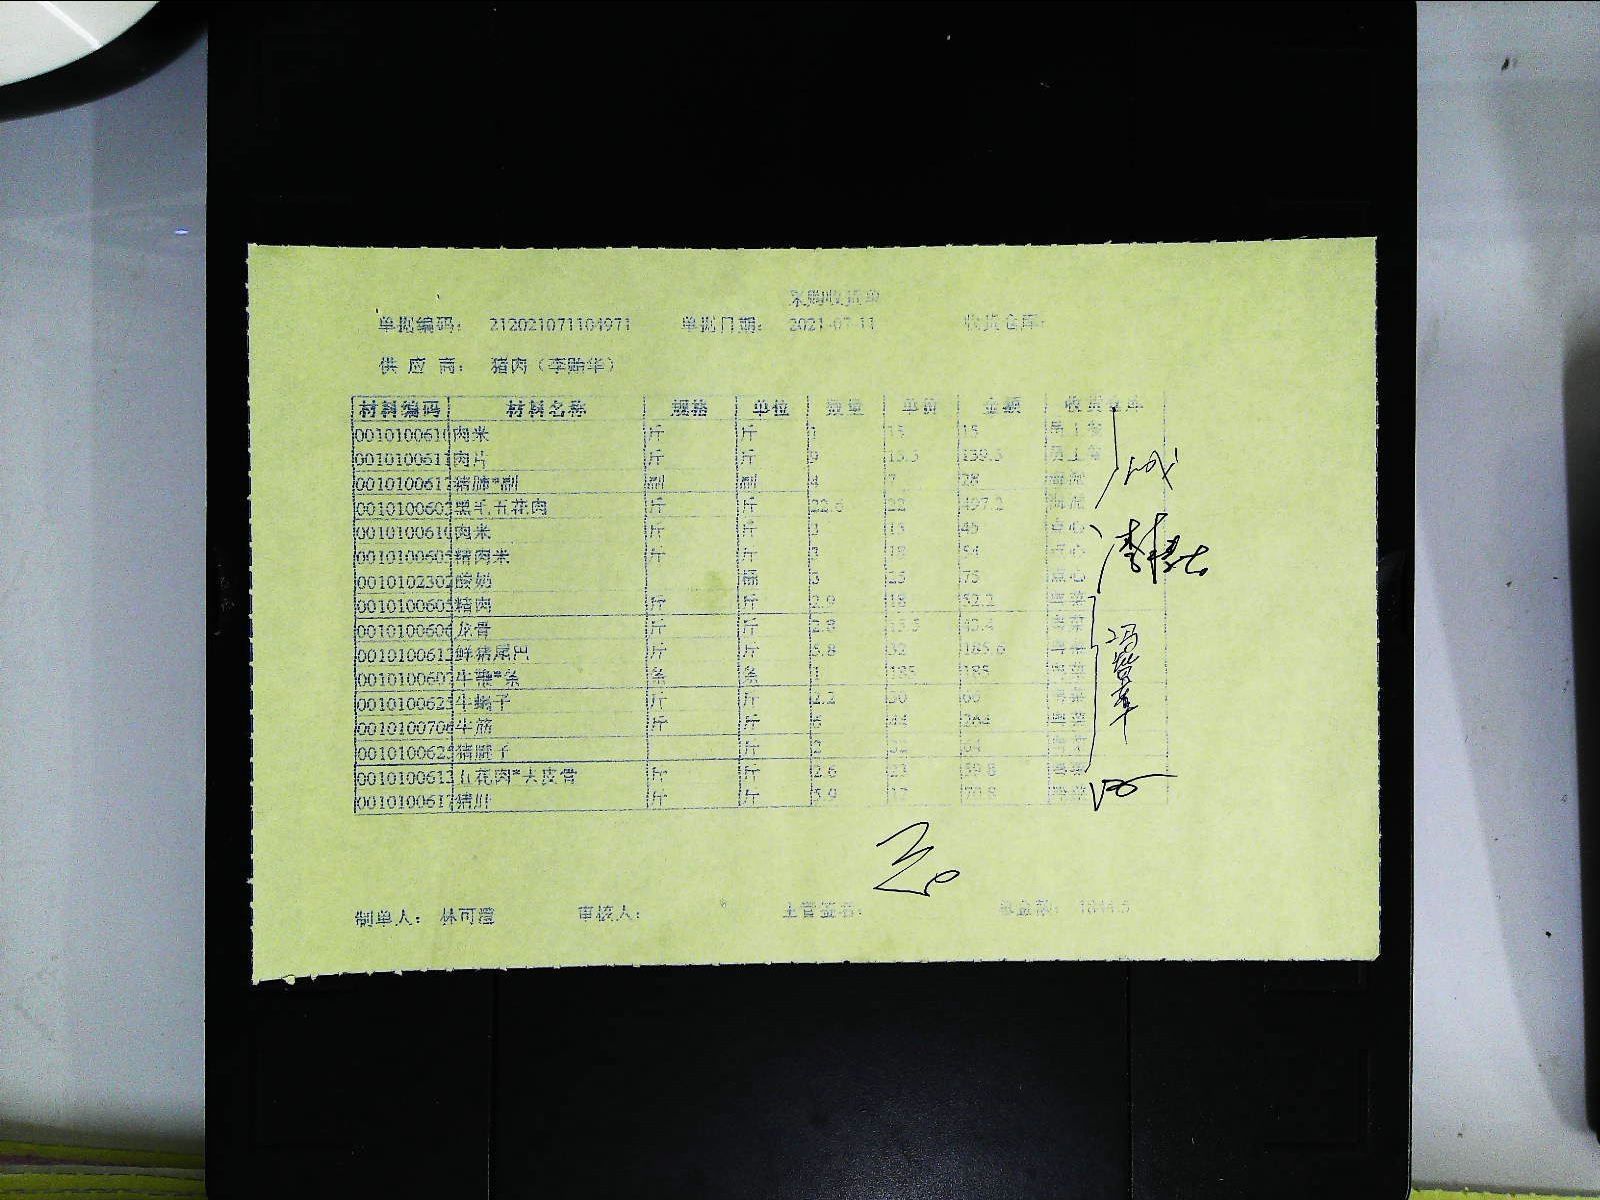 采购收货单
单据编码： 212021071104971 单据日期： 2021-07-11 收货仓库：
供 应 商： 猪肉（李贻华）
材料编码 材料名称 规格 单位 数量 单价 金额 收货仓库
0010100610 肉米 斤 斤 1 15 15 员工餐
0010100611 肉片 斤 斤 9 15.5 139.5 员工餐
0010100617 猪肺*副 副 副 4 7 28
0010100602 黑毛五花肉 斤 斤 22.6 22 497.2
0010100610 肉米 斤 斤 3 15 45 点心
0010100605 精肉米 斤 斤 3 18 54 点心
0010102302 酸奶 桶 3 25 75 点心
0010100605 精肉 斤 斤 2.9 18 52.2 粤菜
0010100606 龙骨 斤 斤 2.8 15.5 43.4 粤菜
0010100612 鲜猪尾巴 斤 斤 5.8 32 185.6 粤菜
0010100607 牛鞭*条 条 条 1 185 185 粤菜
0010100625 牛蝎子 斤 斤 2.2 30 66 粤菜
0010100706 牛筋 斤 斤 6 44 264 粤菜
0010100625 猪腱子 斤 2 32 64 粤菜
0010100613 五花肉*去皮骨 斤 斤 2.6 23 59.8 粤菜
0010100617 猪肚 斤 斤 5.9 12 70.8
制单人： 林可滢 审核人： 主管签名： 总金额： 1844.5